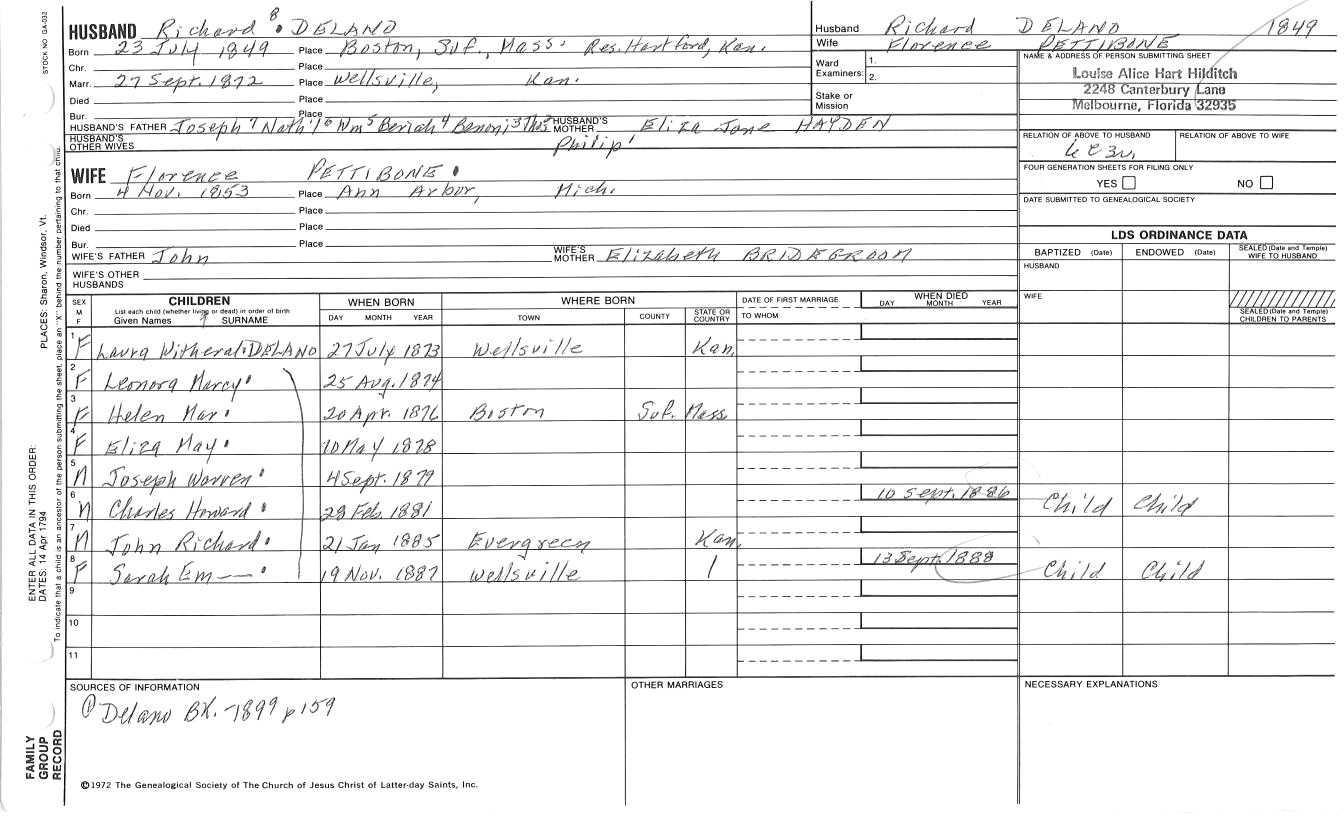 STOCK NO. GA-032
HUSBAND Richard 8 DELANO
Born 23 July 1849 Place Boston, Suf., Mass. Res. Hartford, Kan.
Chr. Place
Marr. 27 Sept. 1872 Place Wellsville, Kan.
Died Place
Bur. Place
HUSBAND'S FATHER Joseph 7 Nath'l 6 Wm 5 Beriah 4 Benoni 3 Thos 2 HUSBAND'S MOTHER Eliza Jane HAYDEN
HUSBAND'S OTHER WIVES Philip 1
WIFE Florence PETTIBONE
Born 4 Nov. 1853 Place Ann Arbor, Mich.
Chr. Place
Died Place
Bur. Place
WIFE'S FATHER John WIFE'S MOTHER Elizabeth BRIDEGROOM
WIFE'S OTHER HUSBANDS
Husband Richard DELANO 1849
Wife Florence PETTIBONE
Ward Examiners: 1. 2.
Stake or Mission
NAME & ADDRESS OF PERSON SUBMITTING SHEET
Louise Alice Hart Hilditch
2248 Canterbury Lane
Melbourne, Florida 32935
RELATION OF ABOVE TO HUSBAND RELATION OF ABOVE TO WIFE
FOUR GENERATION SHEETS FOR FILING ONLY
YES NO
DATE SUBMITTED TO GENEALOGICAL SOCIETY
LDS ORDINANCE DATA
BAPTIZED (Date) ENDOWED (Date) SEALED (Date and Temple) WIFE TO HUSBAND
HUSBAND
WIFE
SEALED (Date and Temple) CHILDREN TO PARENTS
SEX M F CHILDREN WHEN BORN WHERE BORN DATE OF FIRST MARRIAGE WHEN DIED
List each child (whether living or dead) in order of birth
Given Names SURNAME DAY MONTH YEAR TOWN COUNTY STATE OR COUNTRY TO WHOM DAY MONTH YEAR
1 F Laura Witheral DELANO 27 July 1873 Wellsville Kan.
2 F Leonora Marcy 25 Aug. 1874
3 F Helen Mar 20 Apr. 1876 Boston Suf. Mass
4 F Eliza May 10 May 1878
5 M Joseph Warren 4 Sept. 1879
6 M Charles Howard 28 Feb. 1881 10 Sept. 1886 Child Child
7 M John Richard 21 Jan 1885 Evergreen Kan.
8 F Sarah Em— 19 Nov. 1887 Wellsville 13 Sept. 1888 Child Child
9
10
11
SOURCES OF INFORMATION
① Delano BK. -1899 p 159
OTHER MARRIAGES
NECESSARY EXPLANATIONS
©1972 The Genealogical Society of The Church of Jesus Christ of Latter-day Saints, Inc.
PLACES: Sharon, Windsor, Vt.
ENTER ALL DATA IN THIS ORDER:
DATES: 14 Apr 1794
To indicate that a child is an ancestor of the person submitting the sheet, place an "X" behind the number pertaining to that child.
FAMILY GROUP RECORD